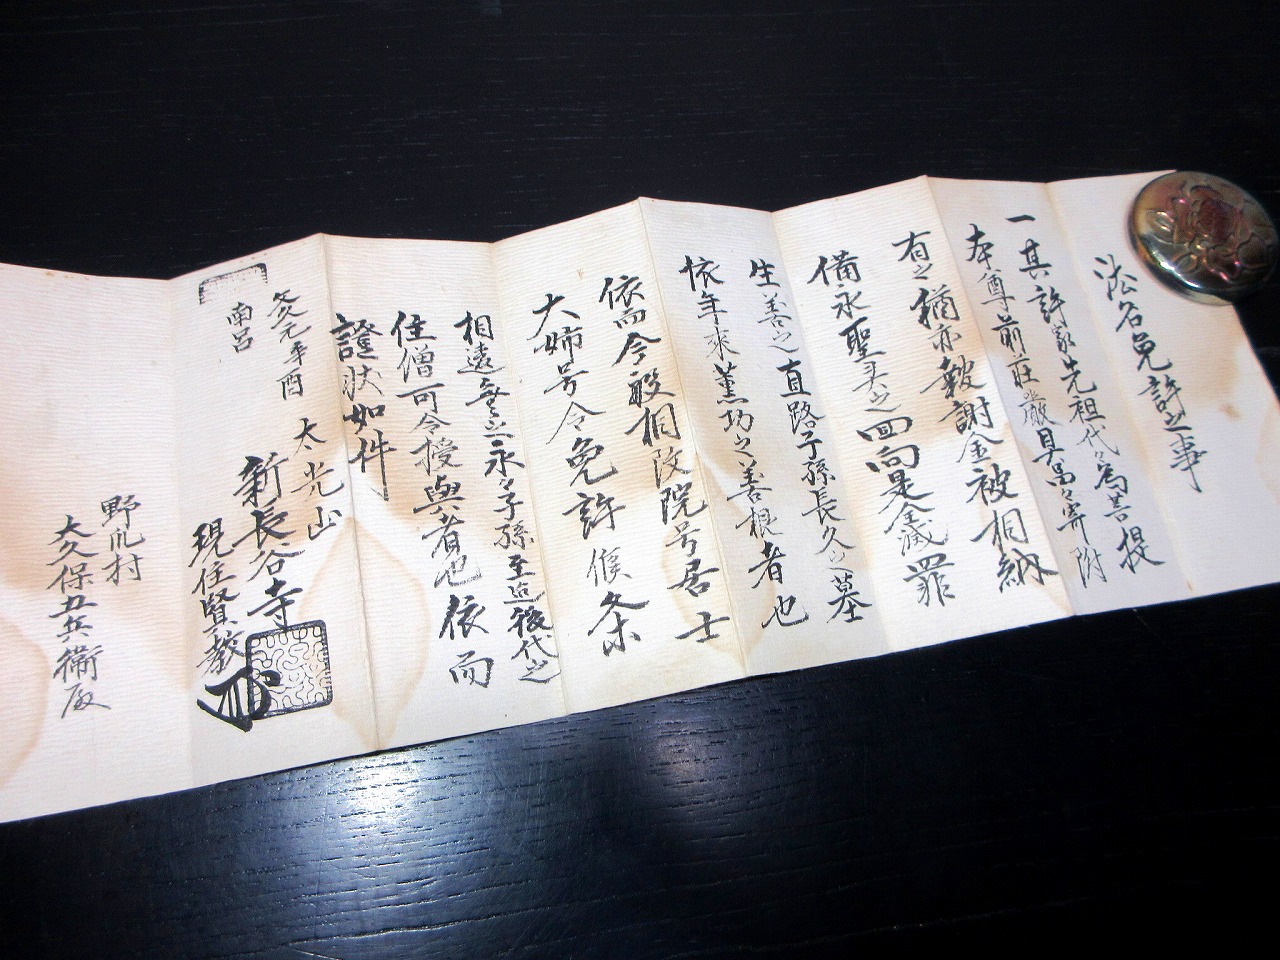 法名免許之事
一其許家先祖代々為菩提
本尊前荘厳具品々寄附
有之猶亦報謝金被相納
備永聖
之回向是全滅罪
生善之直路子孫長久之墓
依年来薫功之善根者也
依而今般相改院号居士
大姉号令免許候条
相違無之永々子孫至迄後代之
住僧可令授與者也依而
證状如件
文久元辛酉
南呂
太光山
新長谷寺
現住賢教
野爪村
大久保五兵衛殿